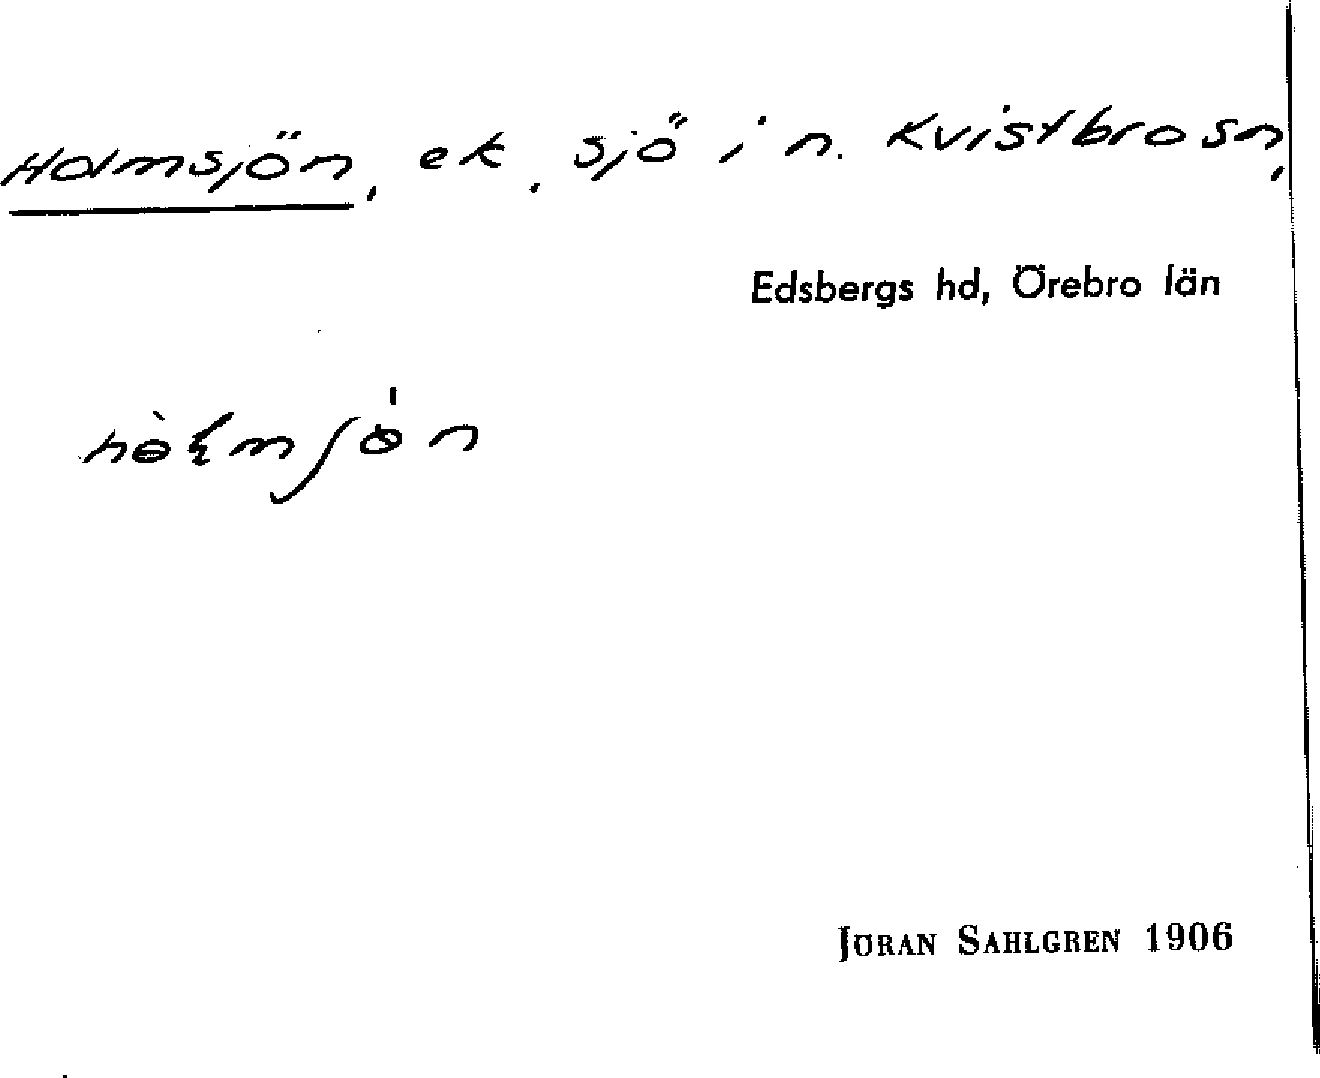 Holmsjön, ek. sjö i n. Kvistbro sn,
Edsbergs hd, Örebro län
JÖRAN SAHLGREN 1906